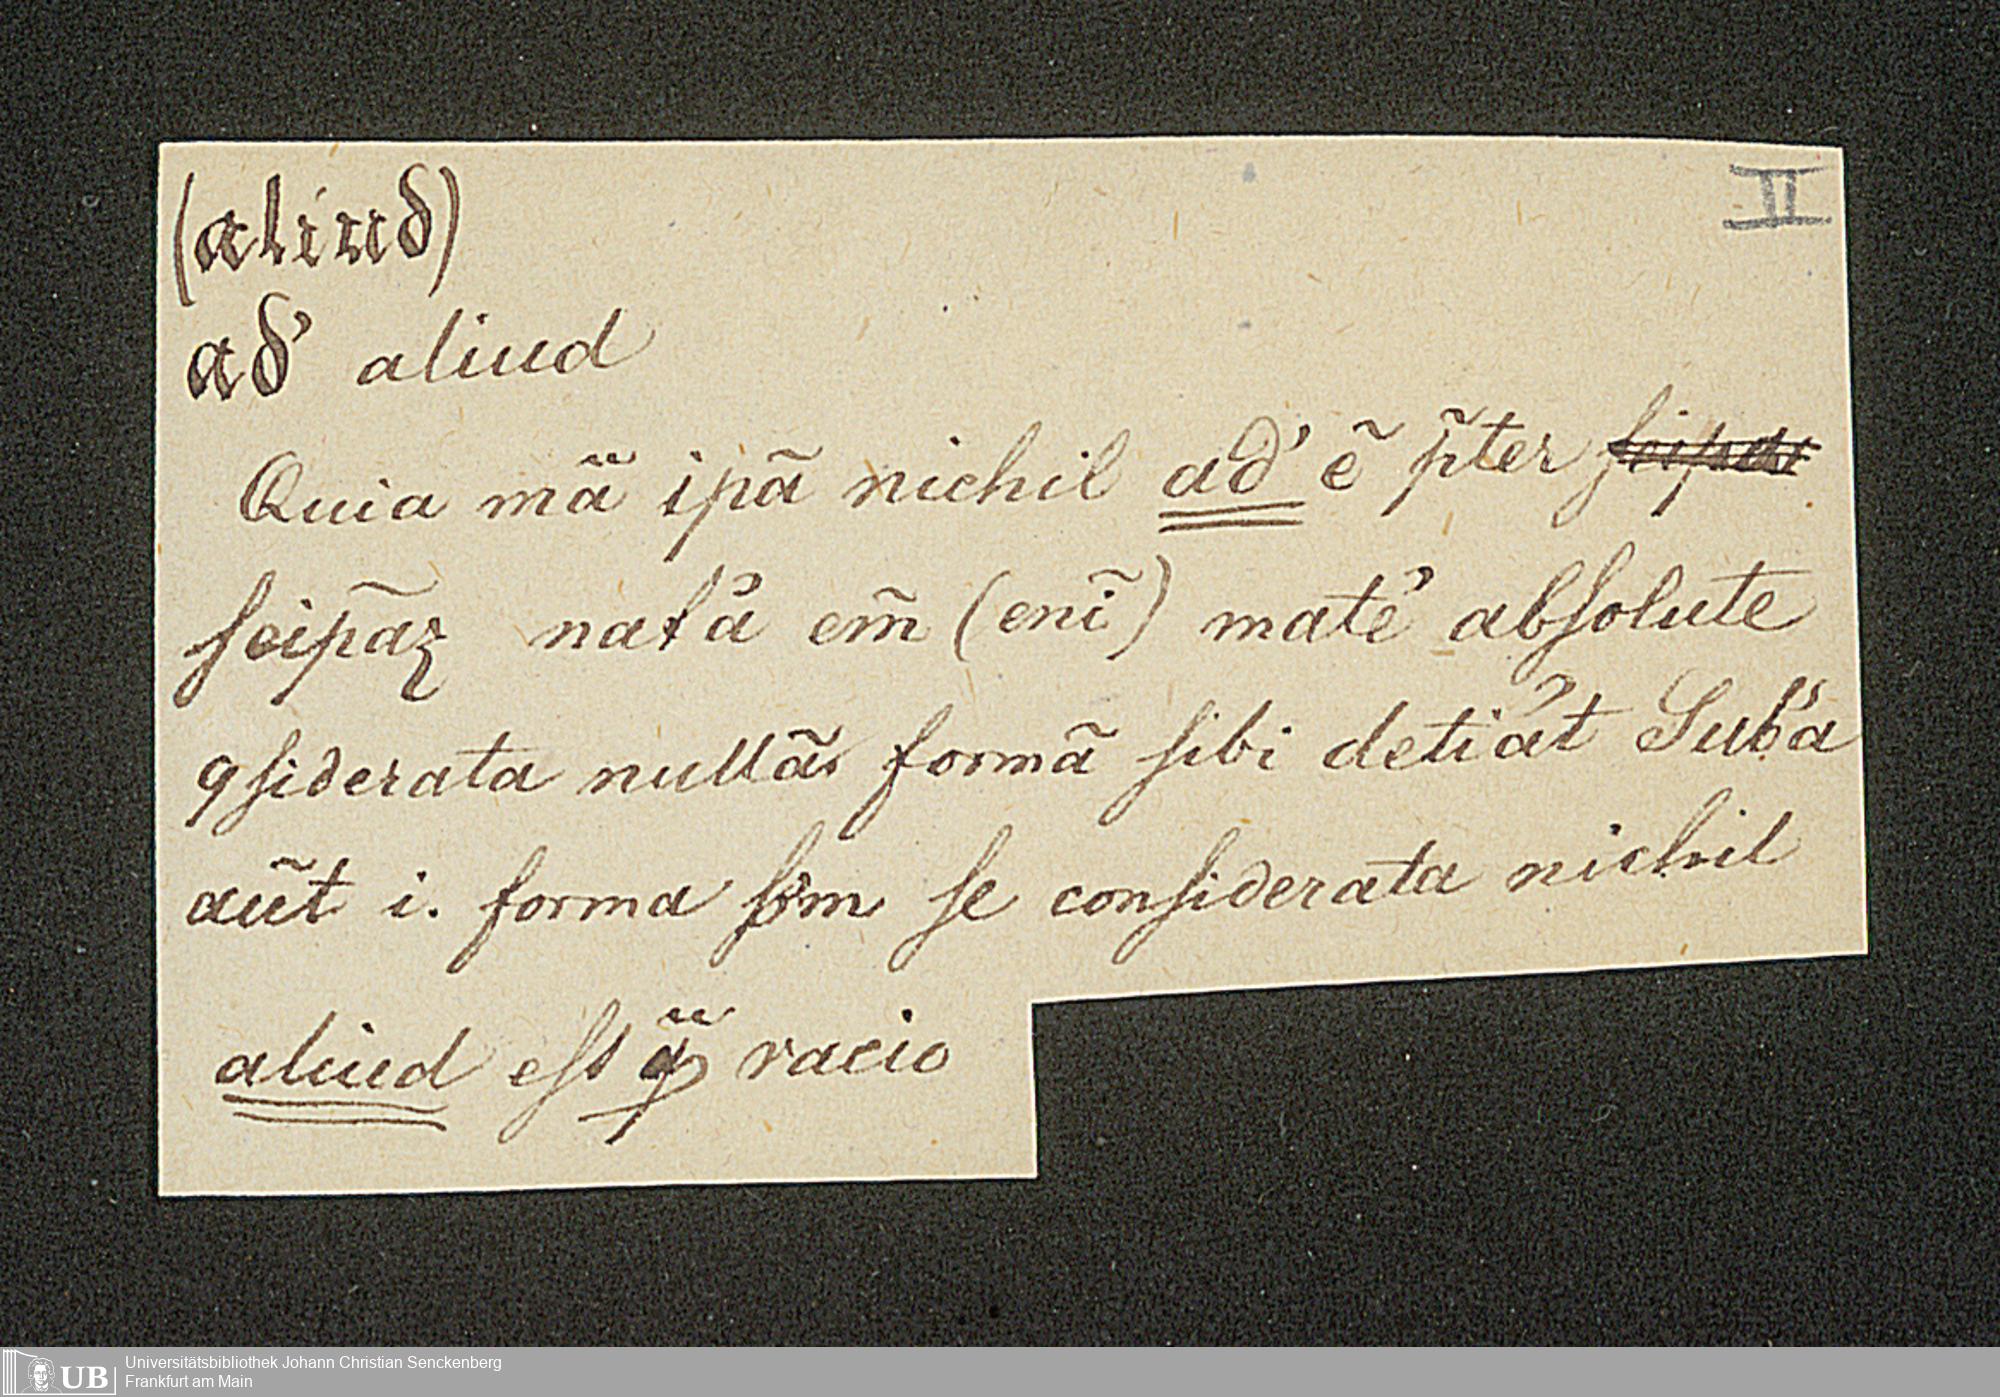 (aliud)
II
ad' aliud
Quia mãã ipã nichil ad' ẽ p̃ter
seipãz natá em̃ (enĩ) maté absolute
ꝯsiderata nullã formã sibi detiát Sub'a
aũt i. forma sm se considerata nichil
aliud est racio
UB
Universitätsbibliothek Johann Christian Senckenberg
Frankfurt am Main